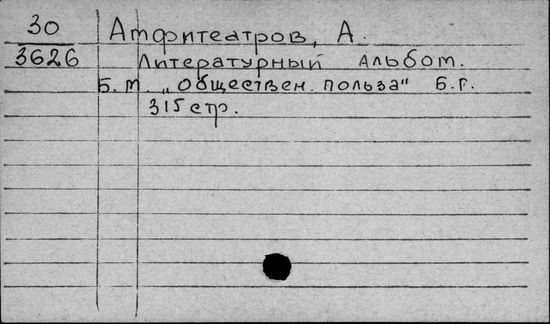 30 Амфитеатров, А.
3626 Литературный альбом.
Б. м. „Обществен. польза" Б. г.
315 стр.